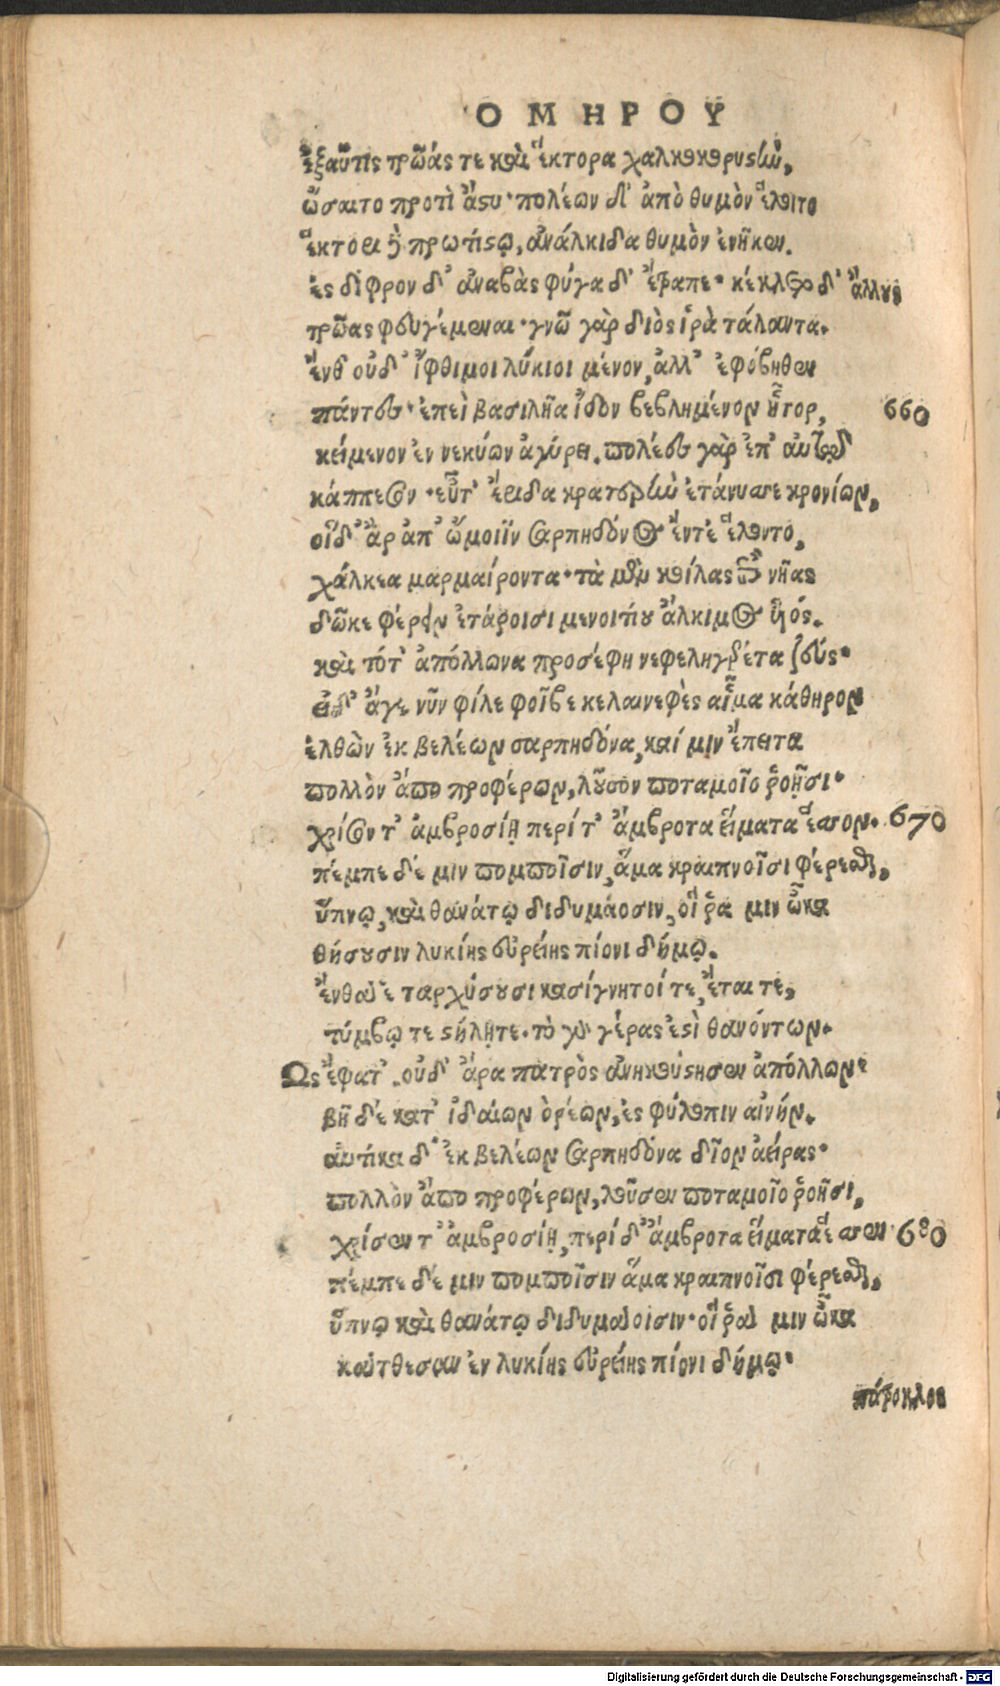 ΟΜΗΡΟΥ
ἐξαῦτις τρῶάς τε καὶ ἕκτορα χαλκοκορυστὴν,
ὤσαιτο προτὶ ἄστυ· πολέων δ' ἀπὸ θυμὸν ἕλοιτο
ἕκτορι δὲ πρωτίστῳ, ἀνάλκιδα θυμὸν ἐνῆκεν.
ἐς δίφρον δ' ἀναβὰς φύγα δ' ἔτραπε· κέκλετο δ' ἄλλους
τρῶας φευγέμεναι· γνῶ γὰρ διὸς ἱρὰ τάλαντα.
ἔνθ' οὐδ' ἴφθιμοι λύκιοι μένον, ἀλλ' ἐφόβηθεν
πάντες· ἐπεὶ βασιλῆα ἴδον βεβλημένον ἦτορ, 660
κείμενον ἐν νεκύων ἀγύρει. πολέες γὰρ ἐπ' αὐτῷ
κάππεσον· εὖτ' ἔριδα κρατερὴν ἐτάνυσσε κρονίων,
οἱ δ' ἂρ ἀπ' ὤμοιϊν σαρπηδόνος ἔντε' ἕλοντο,
χάλκεα μαρμαίροντα· τὰ μὲν κοίλας ἐπὶ νῆας
δῶκε φέρειν ἑτάροισι μενοιτίου ἄλκιμος υἱός.
καὶ τότ' ἀπόλλωνα προσέφη νεφεληγερέτα ζεύς·
εἰ δ' ἄγε νῦν φίλε φοῖβε κελαινεφὲς αἷμα κάθηρον
ἐλθὼν ἐκ βελέων σαρπηδόνα, καί μιν ἔπειτα
πολλὸν ἄπο προφέρων, λοῦσον ποταμοῖο ῥοῇσι·
χρίσον τ' ἀμβροσίῃ περί τ' ἄμβροτα εἵματα ἕσσον. 670
πέμπε δέ μιν πομποῖσιν, ἅμα κραιπνοῖσι φέρεσθαι,
ὕπνῳ, καὶ θανάτῳ διδυμάοσιν, οἵ ῥα μιν ὦκα
θήσουσιν λυκίης εὐρείης πίονι δήμῳ.
ἔνθα ἑ ταρχύσουσι κασίγνητοί τε, ἔται τε,
τύμβῳ τε στήλῃτε. τὸ γὰρ γέρας ἐστὶ θανόντων.
Ὣς ἔφατ'. οὐδ' ἄρα πατρὸς ἀνηκούστησεν ἀπόλλων·
βῆ δὲ κατ' ἰδαίων ὀρέων, ἐς φύλοπιν αἰνήν.
αὐτίκα δ' ἐκ βελέων σαρπηδόνα δῖον ἀείρας·
πολλὸν ἄπο προφέρων, λοῦσεν ποταμοῖο ῥοῆσι,
χρίσεν τ' ἀμβροσίῃ, περὶ δ' ἄμβροτα εἵματα ἕσσεν· 680
πέμπε δέ μιν πομποῖσιν ἅμα κραιπνοῖσι φέρεσθαι,
ὕπνῳ καὶ θανάτῳ διδυμάοισιν· οἵ ῥα μιν ὦκα
κάτθεσαν ἐν λυκίης εὐρείης πίονι δήμῳ·
πάτροκλος
Digitalisierung gefördert durch die Deutsche Forschungsgemeinschaft - DFG